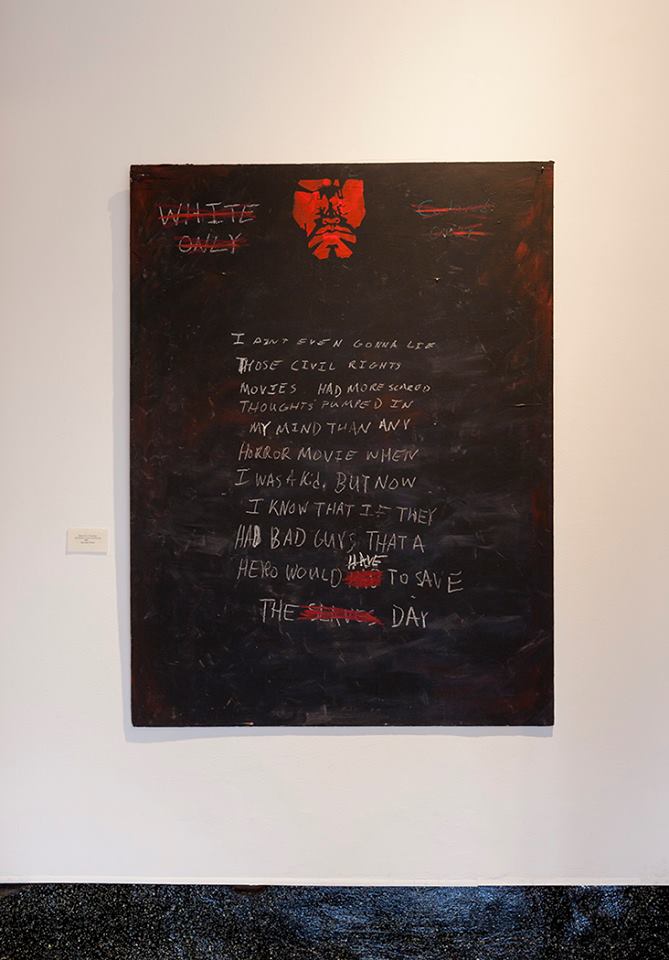 WHITE
ONLY
Colored
ONLY
I AINT EVEN GONNA LIE
THOSE CIVIL RIGHTS
MOVIES HAD MORE SCARED
THOUGHTS PUMPED IN
MY MIND THAN ANY
HORROR MOVIE WHEN
I WAS A Kid. BUT NOW
I KNOW THAT IF THEY
HAD BAD GUYS THAT A
HERO WOULD HAVE TO SAVE
THE SLAVES DAY